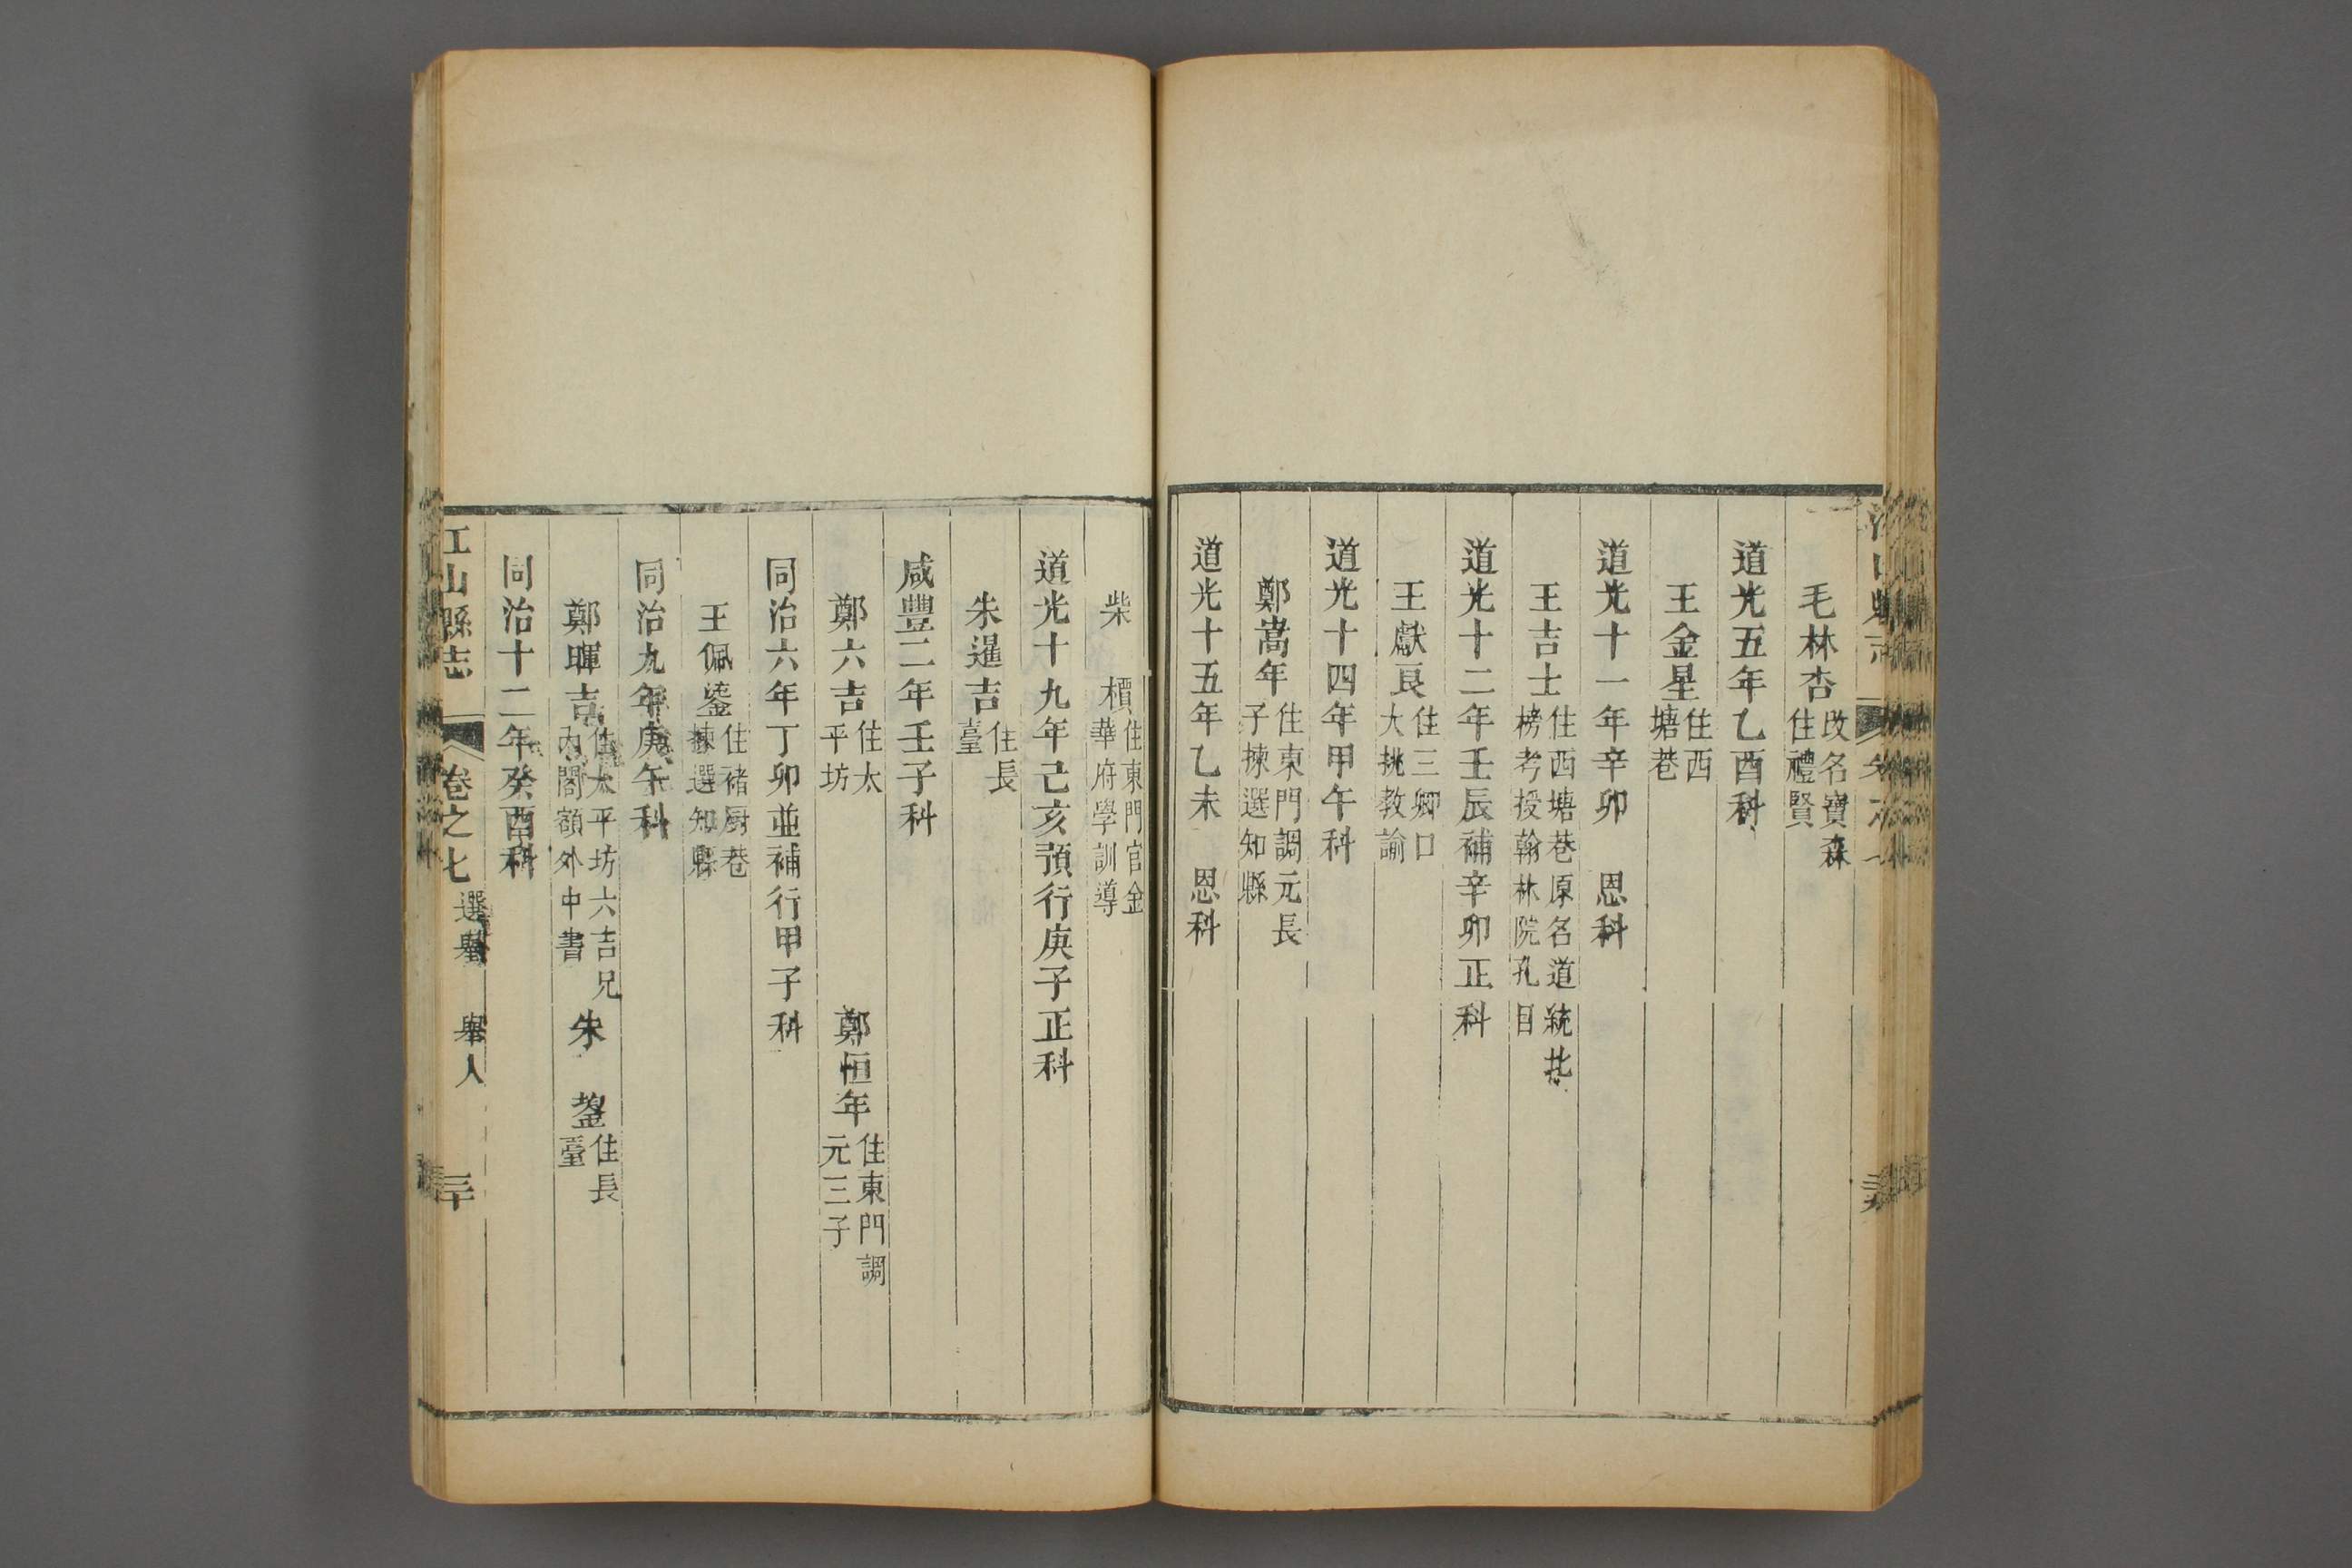 毛林杏改名寶森住禮賢
道光五年乙酉科
王金星住西塘巷
道光十一年辛卯　恩科
王吉士住西塘巷原名道統北榜考授翰林院孔目
道光十二年壬辰補辛卯正科
王獻良住三卿口大挑教諭
道光十四年甲午科
鄭嵩年住東門調元長子揀選知縣
道光十五年乙未　恩科
柴　檟住東門官金華府學訓導
道光十九年己亥預行庚子正科
朱暹吉住長臺
咸豐二年壬子科
鄭六吉住太平坊　鄭恒年住東門調元三子
同治六年丁卯並補行甲子科
王佩鎏住褚厨巷揀選知縣
同治九年庚午科
鄭暉吉住太平坊六吉兄內閣額外中書　朱　鋆住長臺
同治十二年癸酉科
江山縣志　卷之七選舉　舉人　三十